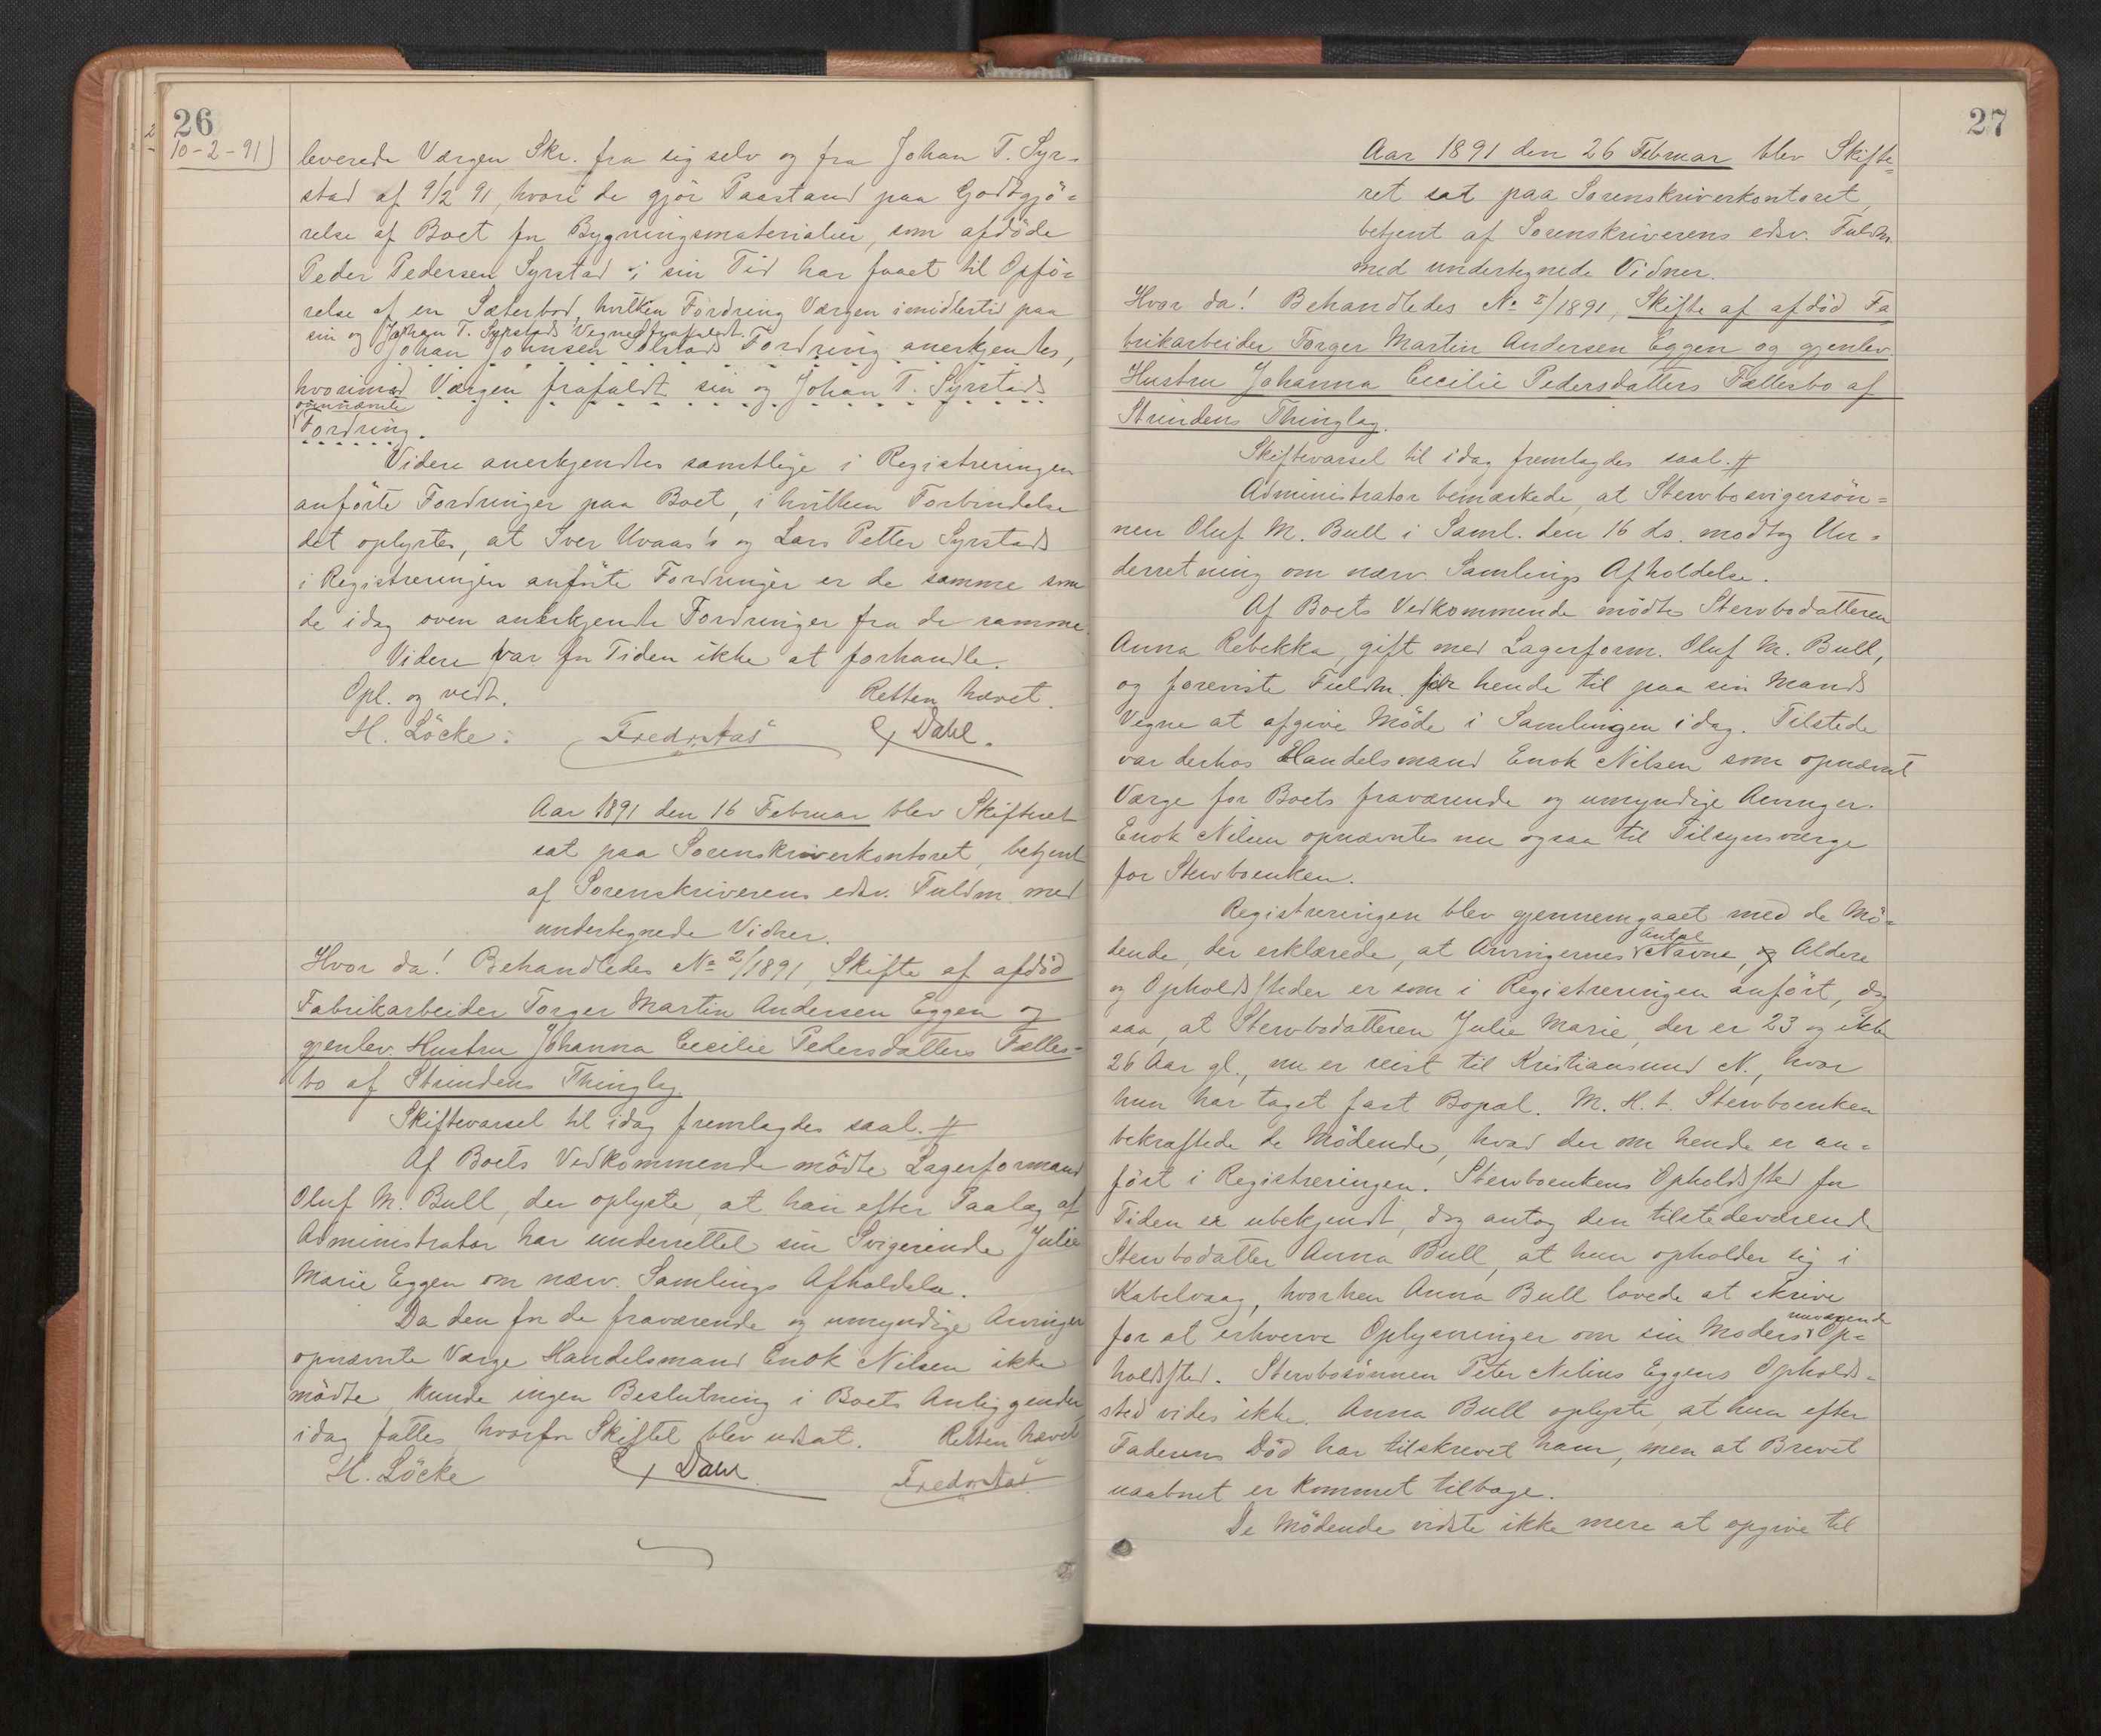 26
10-2-91)
leverede Værgen Skr. fra sig selv og fra Johan T. Syr-
stad af 9/2 91, hvori de gjör Paastand paa Godtgjö-
relse af Boet for Bygningsmaterialier, som afdöde
Peder Pedersen Syrstad i sin Tid har faaet til Opfö-
relse af en Sæterbod, hvilken Fordring Værgen imidlertid paa
sin og Johan T. Syrstads Vegne frafaldt.
Johan Johnsen Solstads Fordring anerkjendtes,
hvorimod Værgen frafaldt sin og Johan T. Syrstads
ovennævnte
Fordring.
Videre anerkjendtes samtlige i Registreringen
anförte Fordringer paa Boet, i hvilken Forbindelse
det oplystes, at Iver Uvaas's og Lars Petter Syrstads
i Registreringen anförte Fordringer er de samme som
de idag oven anerkjendte Fordringer fra de samme.
Videre var for Tiden ikke at forhandle.
Opl. og vedt. Retten hævet.
H. Löcke. Fredrstad Dahl.
Aar 1891 den 16 Februar blev Skifteret
sat paa Sorenskriverkontoret, betjent
af Sorenskriverens edsv. Fuldm. med
undertegnede Vidner.
Hvor da! Behandledes No 2/1891, Skifte af afdöd
Fabrikarbeider Torger Martin Andersen Eggen og
gjenlev. Hustru Johanna Cecilie Pedersdatters Fælles-
bo af Strindens Thinglag.
Skiftevarsel til idag fremlagdes saal. #
Af Boets Vedkommende mödte Lagerformand
Oluf M. Bull, der oplyste, at han efter Paalæg af
Administrator har underrettet sin Svigerinde Julie
Marie Eggen om nærv. Samlings Afholdelse.
Da den for de fraværende og umyndige Arvinger
opnævnte Værge Handelsmand Enok Nilsen ikke
mödte, kunde ingen Beslutning i Boets Anliggender
idag fattes, hvorfor Skiftet blev udsat. Retten hævet
H. Löcke Dahl. Fredrstad
27
Aar 1891 den 26 Februar blev Skifte-
ret sat paa Sorenskriverkontoret,
betjent af Sorenskriverens edsv. Fuldm.
med undertegnede Vidner.
Hvor da! Behandledes No 2/1891, Skifte af afdöd Fa
brikarbeider Torger Martin Andersen Eggen og gjenlev.
Hustru Johanna Cecilie Pedersdatters Fællesbo af
Strindens Thinglag.
Skiftevarsel til idag fremlagdes saal. #
Administrator bemærkede, at Stervbosvigersön-
nen Oluf M. Bull i Saml. den 16 ds. modtog Un-
derretning om nærv. Samlings Afholdelse.
Af Boets Vedkommende mödte Stervbodatteren
Anna Rebekka, gift med Lagerform. Oluf M. Bull,
og foreviste Fuldm. for hende til paa sin Mands
Vegne at afgive Möde i Samlingen idag. Tilstede
var derhos Handelsmand Enok Nilsen som opnævnt
Værge for Boets fraværende og umyndige Arvinger.
Enok Nilsen opnævntes nu ogsaa til Tilsynsværge
for Stervboenken.
Registreringen blev gjennemgaaet med de Mö-
Antal
dende, der erklærede, at Arvingernes Navne, og Aldere
og Opholdssteder er som i Registreringen anfört, dog
saa, at Stervbodatteren Julie Marie, der er 23 og ikke
26 Aar gl., nu er reist til Kristiansund N., hvor
hun har taget fast Bopæl. M. H. t. Stervboenken
bekræftede de Mödende, hvad der om hende er an-
fört i Registreringen. Stervboenkens Opholdssted for
Tiden er ubekjendt, dog antog den tilstedeværende
Stervbodatter Anna Bull, at hun opholder sig i
Kabelvaag, hvorhen Anna Bull lovede at skrive
nuværende
for at erhverve Oplysninger om sin Moders Op-
holdssted. Stervbosönnen Peter Nelius Eggens Opholds-
sted vides ikke. Anna Bull oplyste, at hun efter
Faderens Död har tilskrevet ham, men at Brevet
uaabnet er kommet tilbage.
De Mödende vidste ikke mere at opgive til